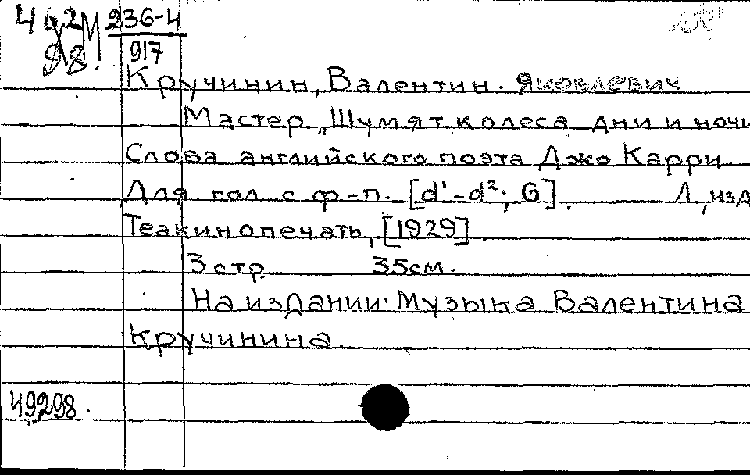 М 236-4
917
Кручинин, Валентин Яковлевич
Мастер. „Шумят колеса дни и ночи
Слова английского поэта Джо Карри
Для гол. с ф-п. [d¹-d²; G]. Л, изд.
Теакинопечать, [1929]
3 стр. 35см.
На издании: Музыка Валентина
Кручинина.
49298.